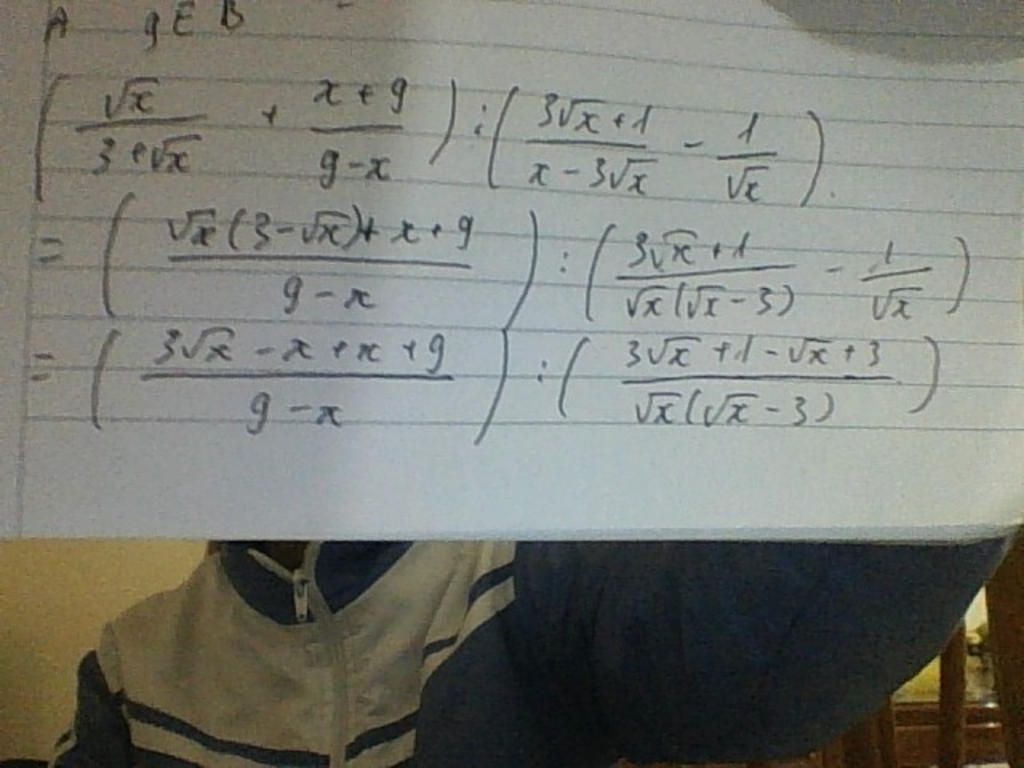 A 9 E B
( √x / 3+√x + x+9 / 9-x ) : ( 3√x+1 / x-3√x - 1 / √x ).
= ( √x(3-√x)+x+9 / 9-x ) : ( 3√x+1 / √x(√x-3) - 1 / √x )
= ( 3√x-x+x+9 / 9-x ) : ( 3√x+1-√x+3 / √x(√x-3) )